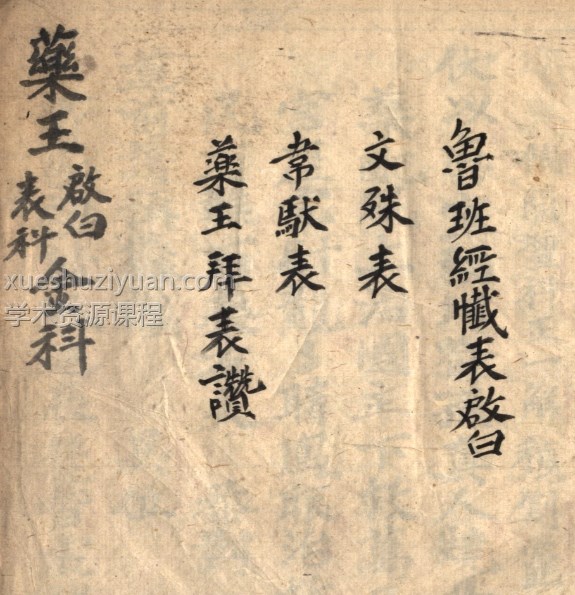 魯班經懺表啟白
文殊表
常馱表
藥王拜表讚
藥王啟白表科金科
xueshuziyuan.com
学术资源课程